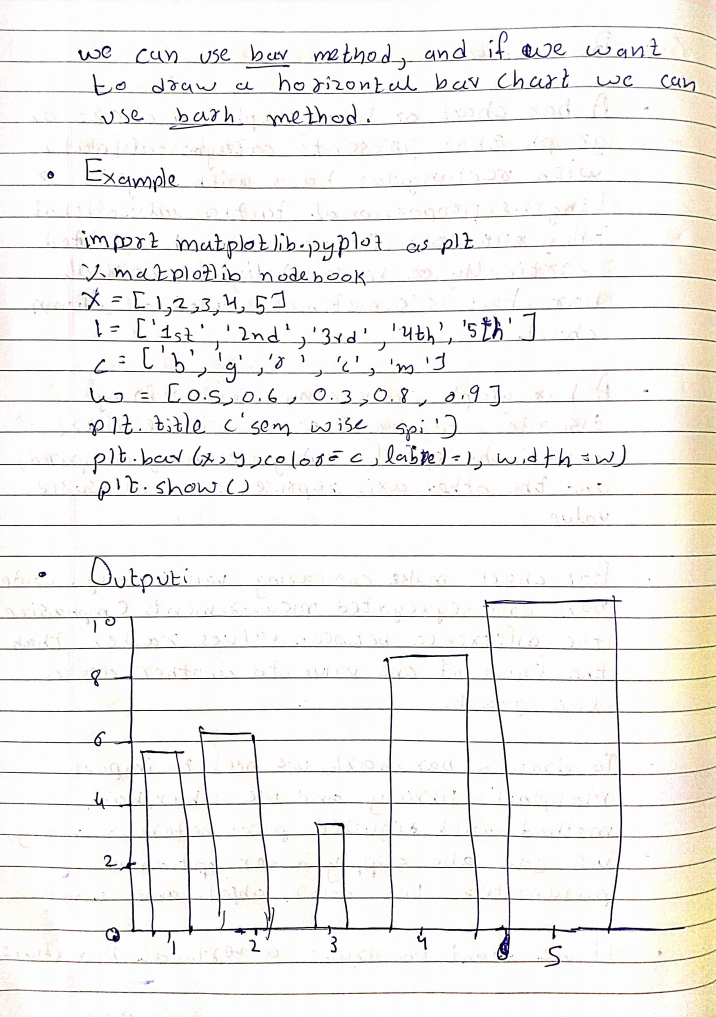 we can use bar method, and if we want
to draw a horizontal bar chart we can
use barh method.
• Example
import matplotlib.pyplot as plt
% matplotlib nodebook
x = [1,2,3,4,5]
l = ['1st', '2nd', '3rd', '4th', '5th']
c = ['b', 'g', 'r', 'c', 'm']
w = [0.5, 0.6, 0.3, 0.8, 0.9]
plt.title ('sem wise spi')
plt.bar (x, y, color = c, label = l, width = w)
plt.show ()
• Output:
10
8
6
4
2
0 1 2 3 4 5